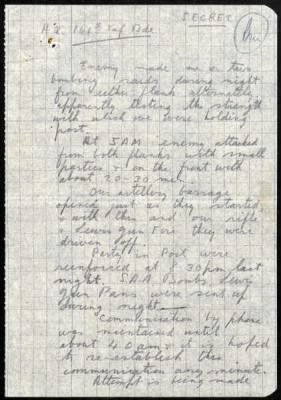 SECRET
H.Q. 141st Inf Bde
Enemy made one or two
bombing raids during night
from either flank alternately
apparently testing the strength
with which we were holding
post.
At 5 AM enemy attacked
from both flanks with small
parties & on the front with
about 20-30 men.
Our artillery barrage
opened just as they started
& with this and our rifle
& Lewis gun fire they were
driven off.
Party in Post were
reinforced at 8.30 pm last
night. S.A.A. Bombs, Lewis
gun Pans, were sent up
during night.
Communication by phone
was maintained until
about 4.0 am & it is hoped
to re-establish this
communication any minute.
Attempt is being made